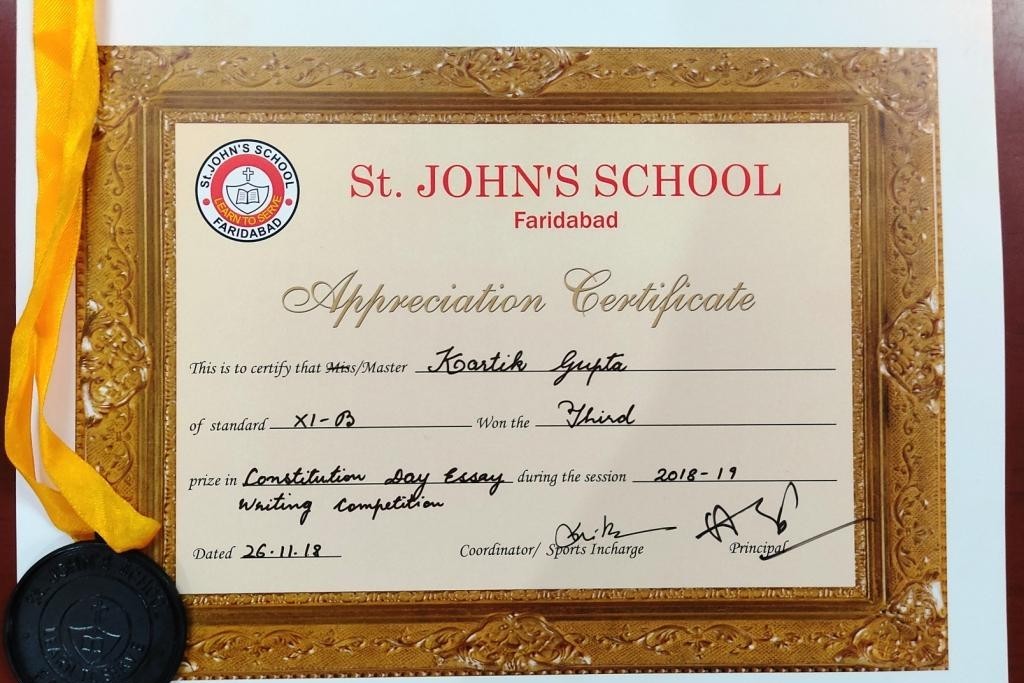 St. JOHN'S SCHOOL
LEARN TO SERVE
FARIDABAD
St. JOHN'S SCHOOL
Faridabad
Appreciation Certificate
This is to certify that Miss/Master Kartik Gupta
of standard XI-B Won the Third
prize in Constitution Day Essay during the session 2018-19
Writing Competition
Dated 26.11.18
Coordinator/ Sports Incharge Principal